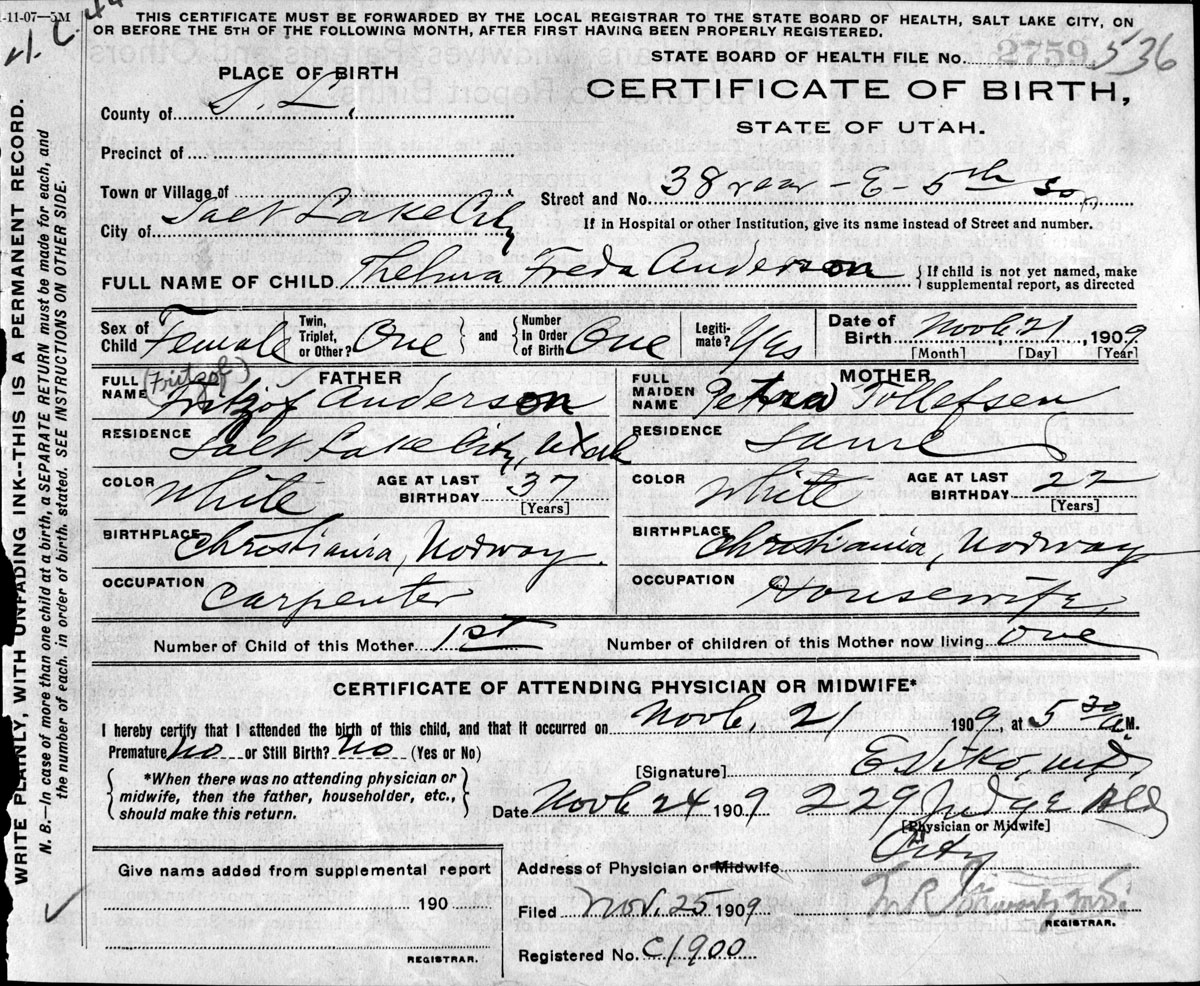 1-11-07—5M
THIS CERTIFICATE MUST BE FORWARDED BY THE LOCAL REGISTRAR TO THE STATE BOARD OF HEALTH, SALT LAKE CITY, ON
OR BEFORE THE 5TH OF THE FOLLOWING MONTH, AFTER FIRST HAVING BEEN PROPERLY REGISTERED.
WRITE PLAINLY, WITH UNFADING INK--THIS IS A PERMANENT RECORD.
N. B.—In case of more than one child at a birth, a SEPARATE RETURN must be made for each, and
the number of each, in order of birth, stated. SEE INSTRUCTIONS ON OTHER SIDE.
STATE BOARD OF HEALTH FILE No. 2759 536
PLACE OF BIRTH
CERTIFICATE OF BIRTH,
STATE OF UTAH.
County of S. L.
Precinct of
Town or Village of
Street and No. 38 rear - E - 5th So
City of Salt Lake City
If in Hospital or other Institution, give its name instead of Street and number.
FULL NAME OF CHILD Thelma Freda Anderson
{If child is not yet named, make
supplemental report, as directed
Sex of Child Female
Twin, Triplet, or Other? One and
Number In Order of Birth One
Legiti-mate? Yes
Date of Birth Novb. 21, 1909
[Month] [Day] [Year]
FATHER
FULL NAME (Fritzof) Fritzof Anderson
RESIDENCE Salt Lake City, Utah
COLOR White AGE AT LAST BIRTHDAY 37
[Years]
BIRTHPLACE Christiania, Norway
OCCUPATION Carpenter
MOTHER
FULL MAIDEN NAME Petra Tollefsen
RESIDENCE Same
COLOR White AGE AT LAST BIRTHDAY 22
[Years]
BIRTHPLACE Christiania, Norway
OCCUPATION Housewife
Number of Child of this Mother 1st Number of children of this Mother now living One
CERTIFICATE OF ATTENDING PHYSICIAN OR MIDWIFE*
I hereby certify that I attended the birth of this child, and that it occurred on Novb. 21 1909, at 5 30 A.M.
Premature No or Still Birth? No (Yes or No)
[Signature] M.D.
*When there was no attending physician or
midwife, then the father, householder, etc.,
should make this return.
Date Novb 24 1909 229 Judge Bld
[Physician or Midwife]
Address of Physician or Midwife City
Filed Nov. 25 1909
REGISTRAR.
Registered No. C1900
Give name added from supplemental report
190
REGISTRAR.